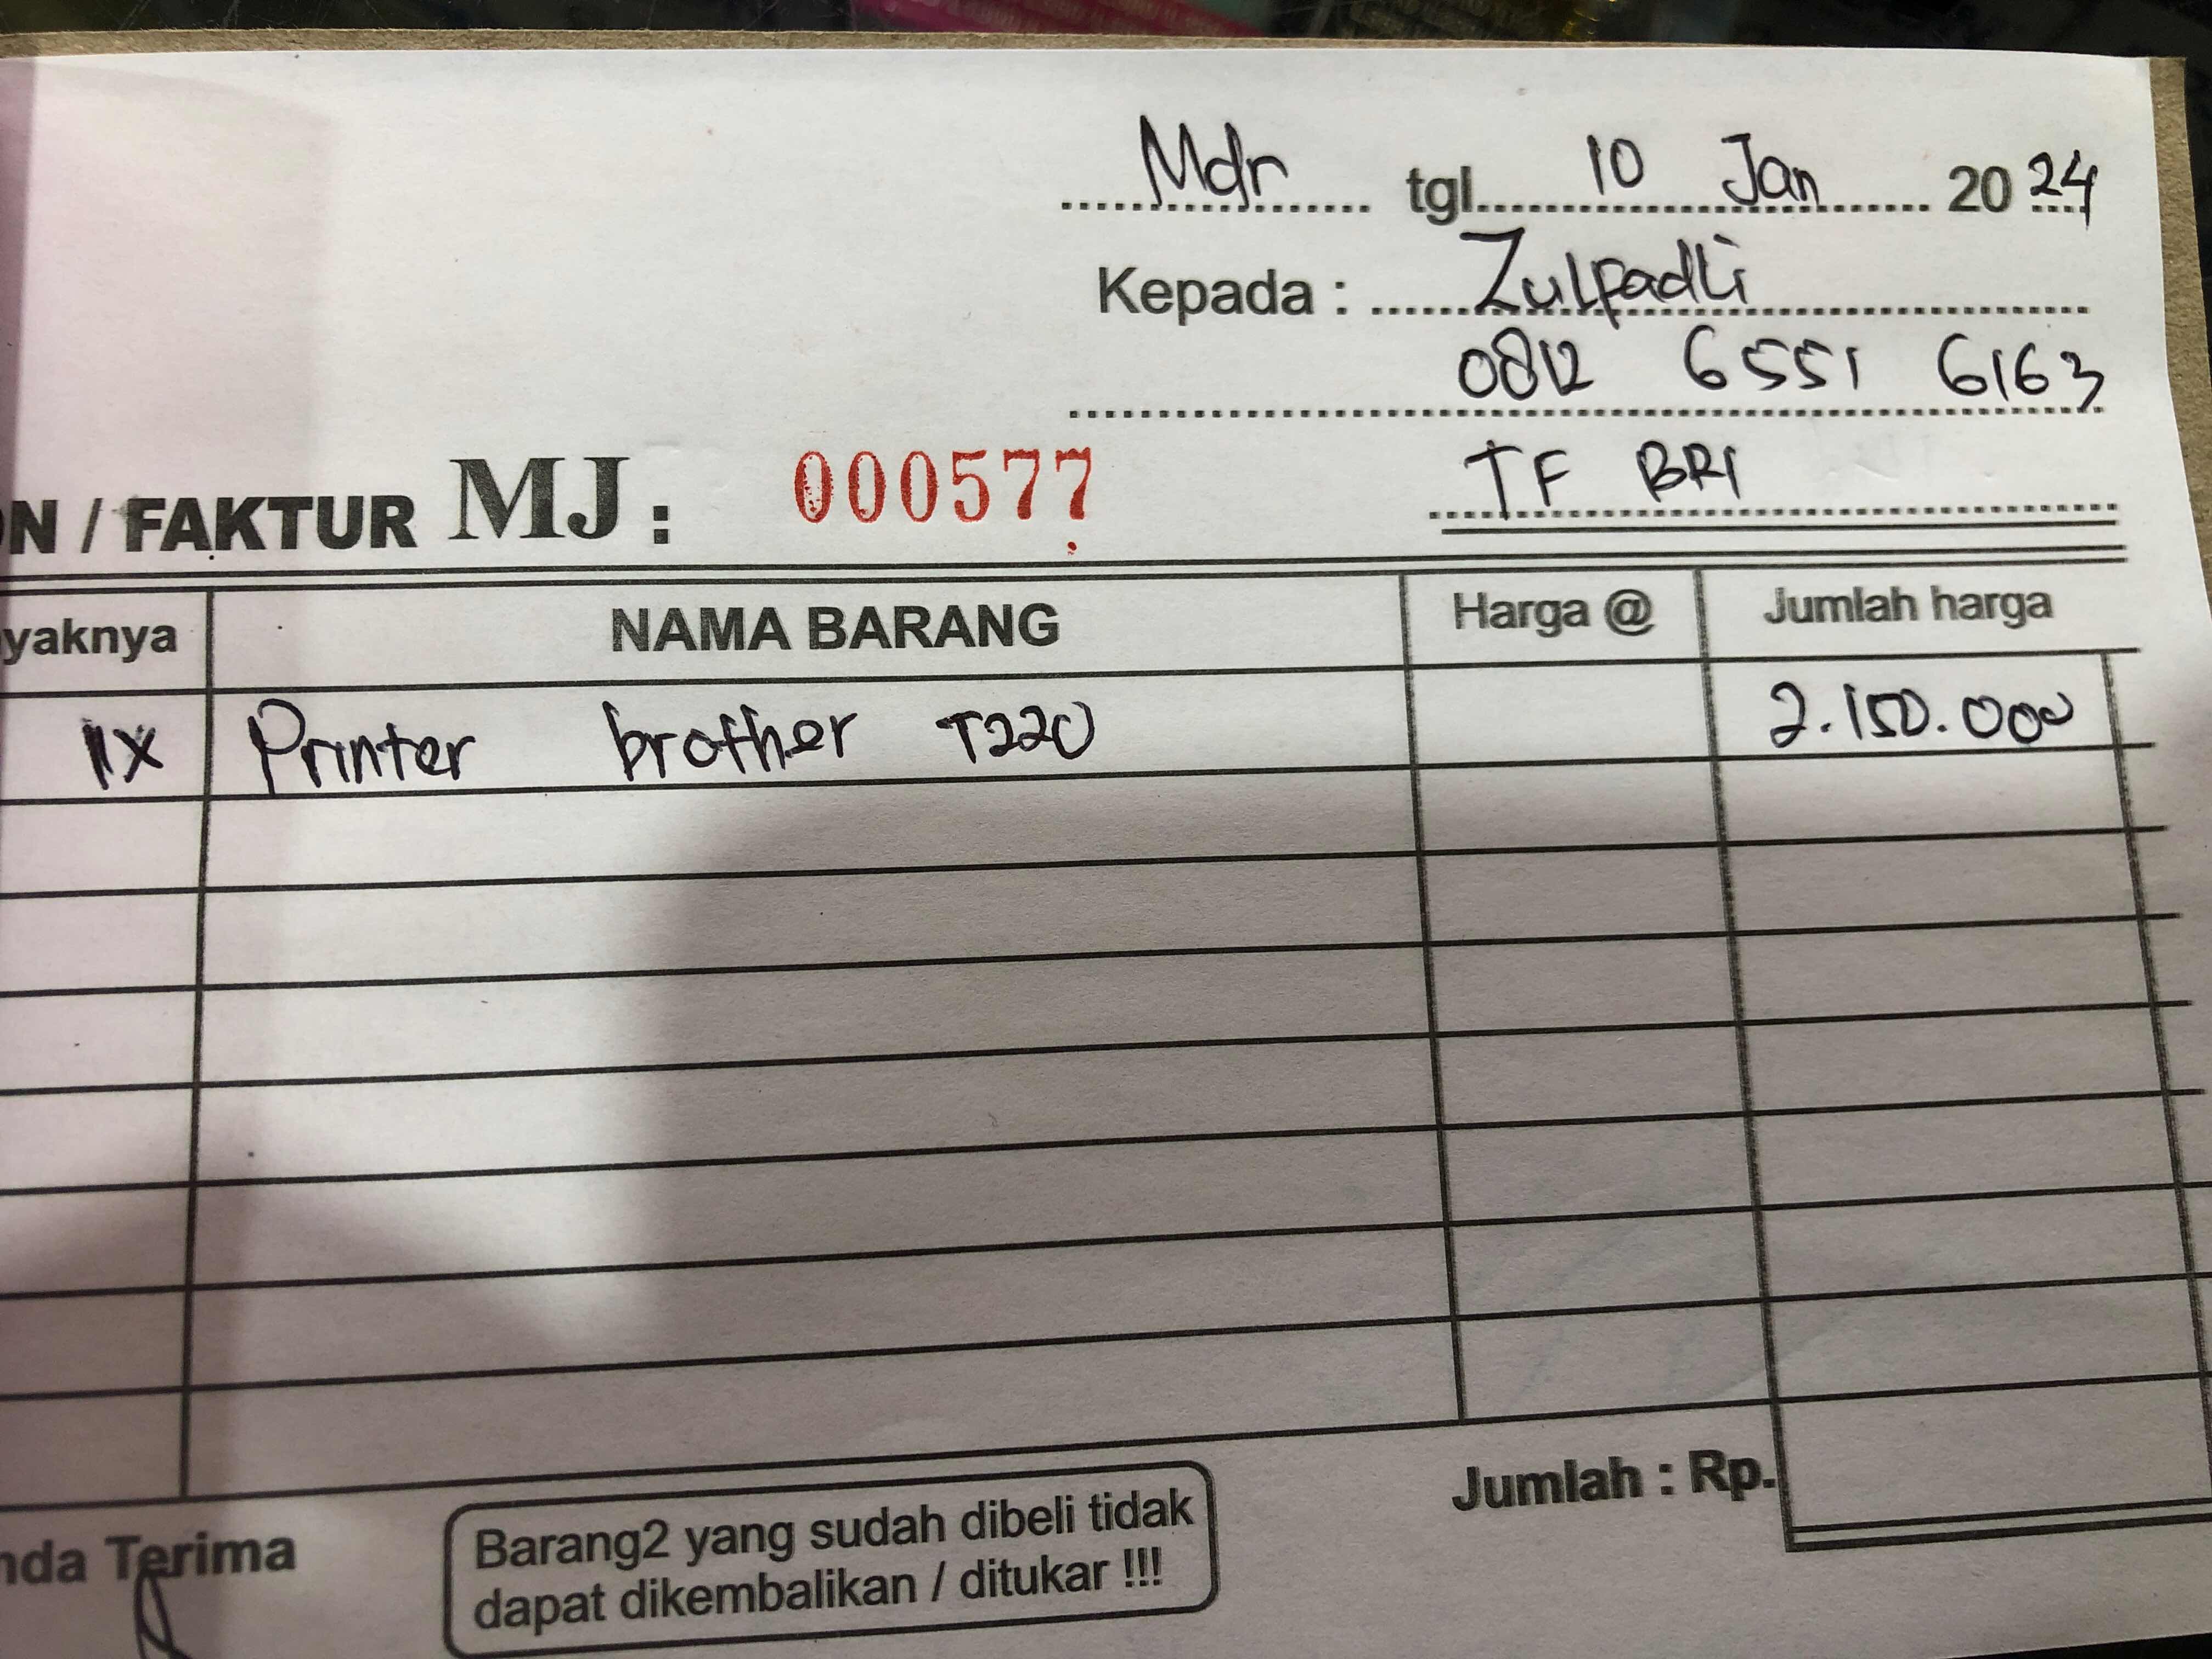 Mdr tgl 10 Jan 2024
Kepada : Zulfadli
0812 6551 6163
TF BRI
N / FAKTUR MJ : 000577
yaknya NAMA BARANG Harga @ Jumlah harga
1X Printer brother T220 2.150.000
Jumlah : Rp.
nda Terima
Barang2 yang sudah dibeli tidak
dapat dikembalikan / ditukar !!!